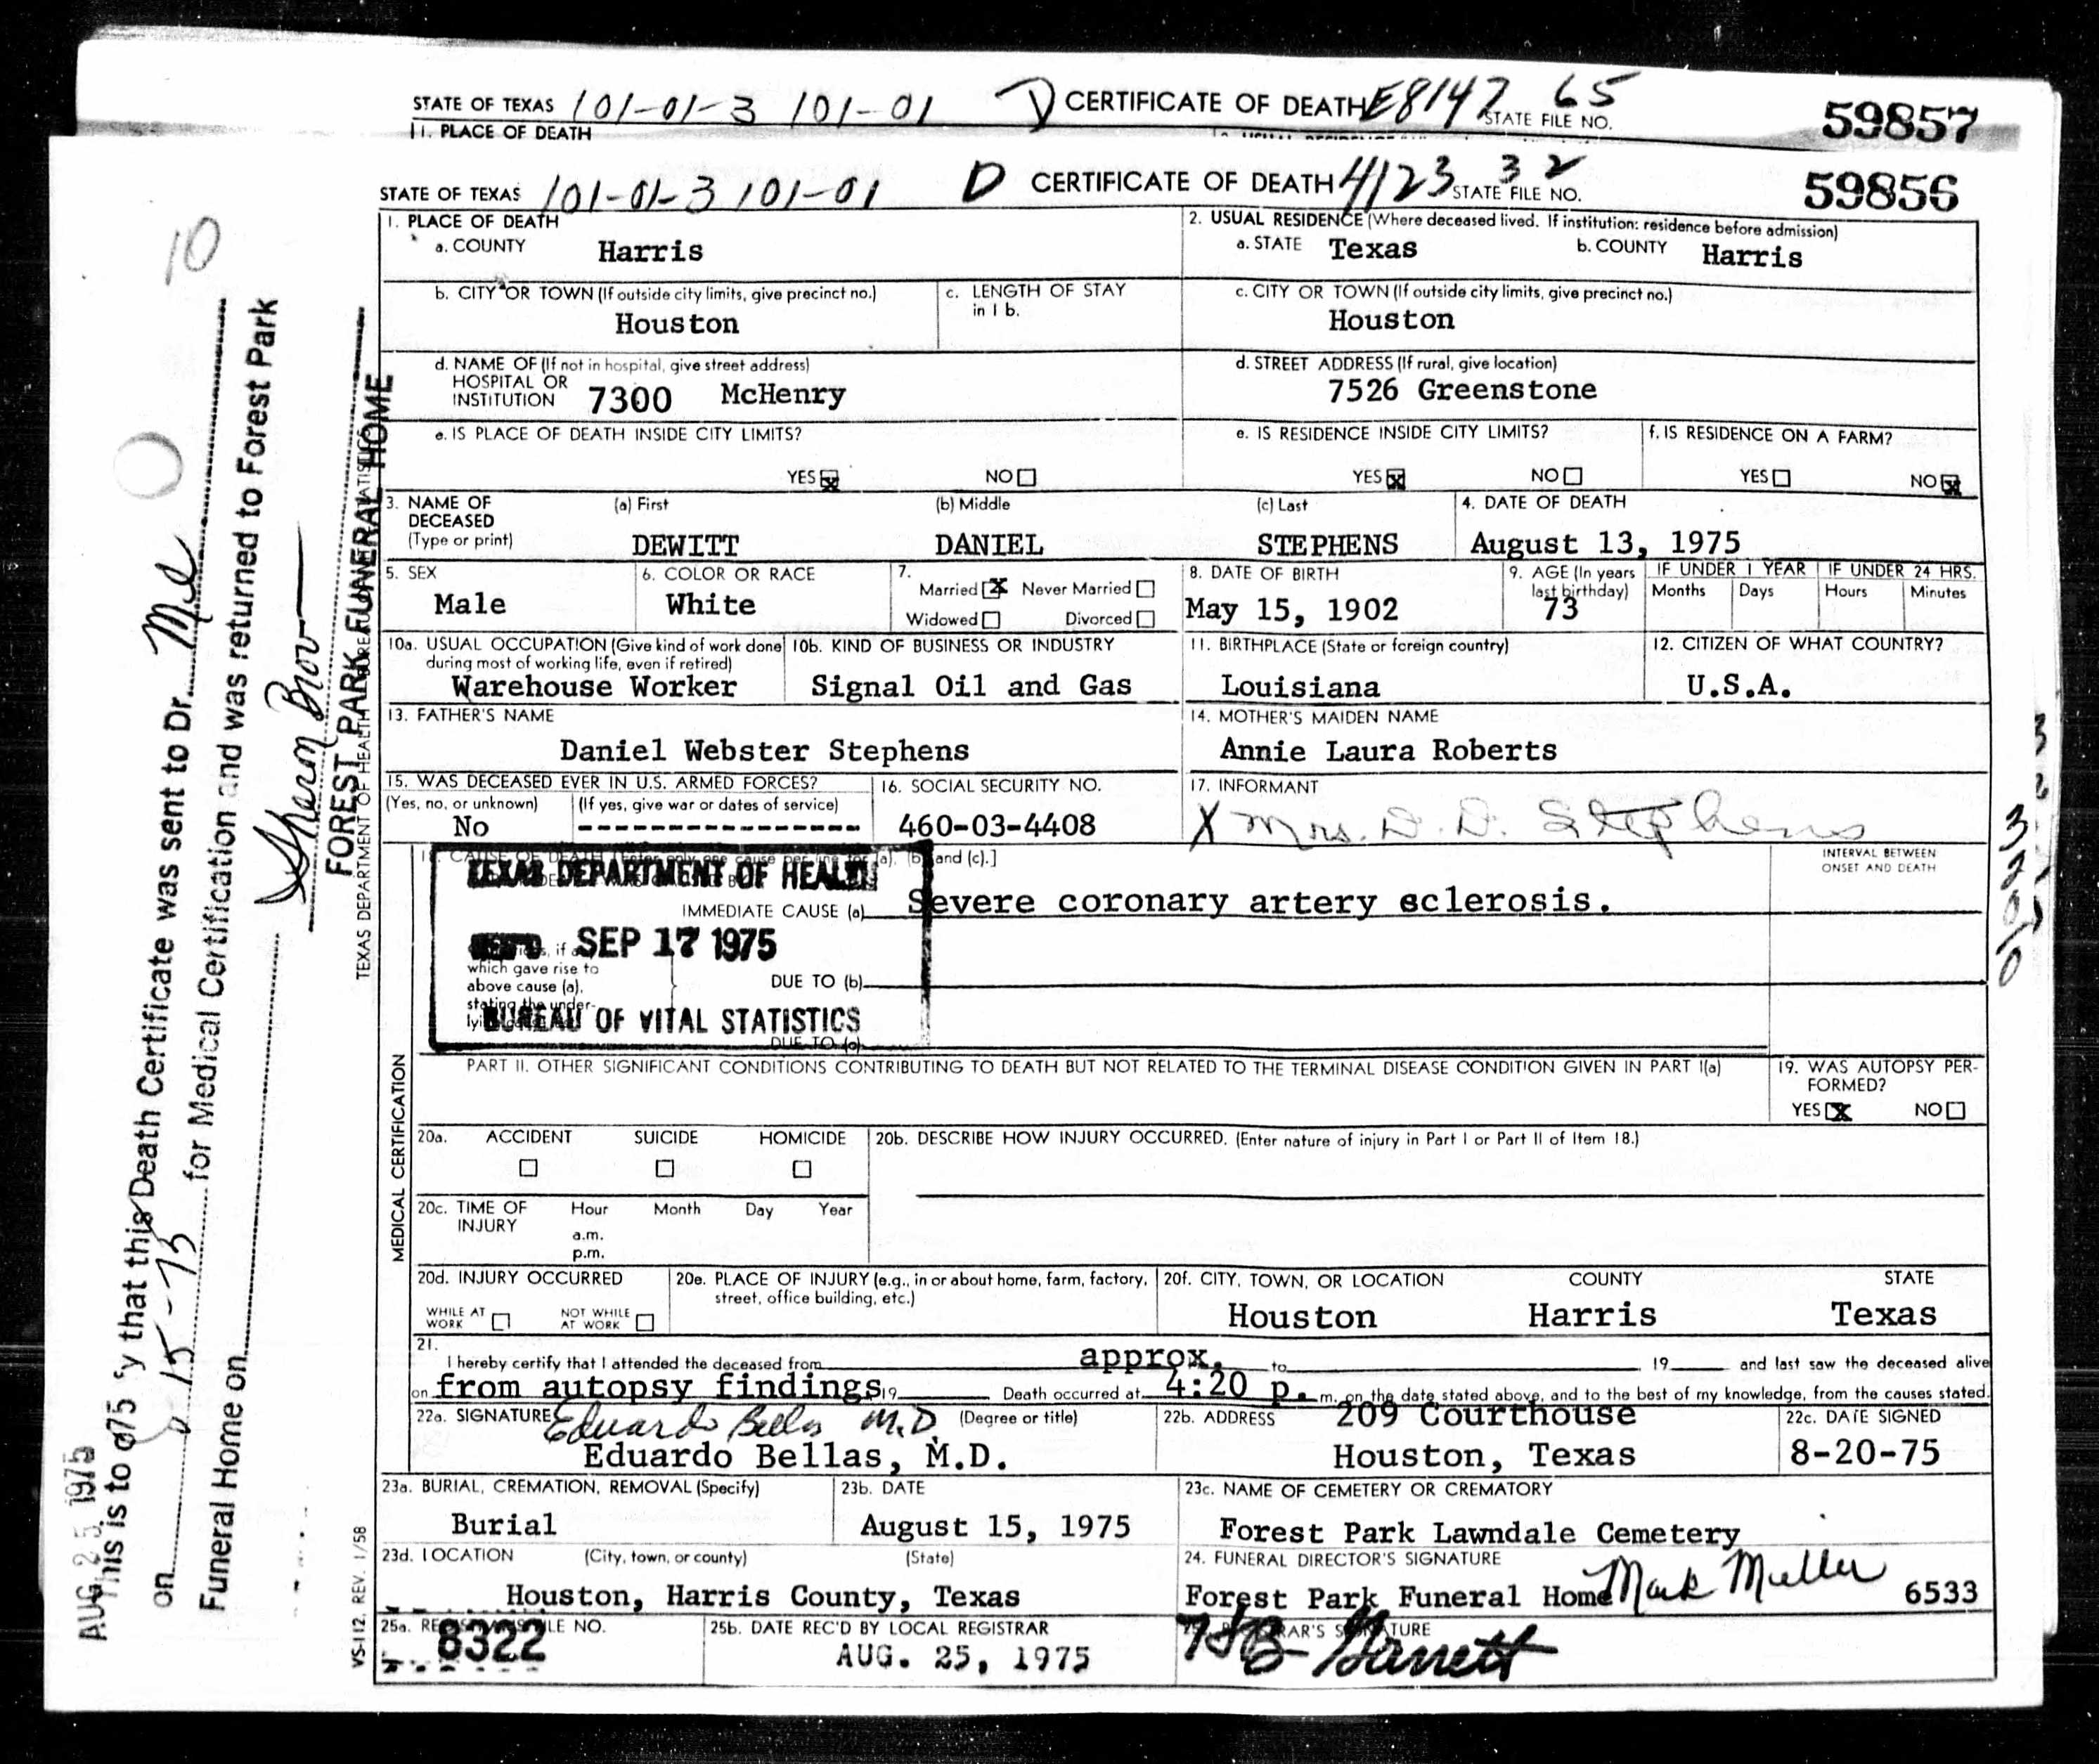 STATE OF TEXAS 101-01-3 101-01 D CERTIFICATE OF DEATH E8147 65 STATE FILE NO. 59857
1. PLACE OF DEATH
STATE OF TEXAS 101-01-3 101-01 D CERTIFICATE OF DEATH 4123 32 STATE FILE NO. 59856
1. PLACE OF DEATH
a. COUNTY Harris
2. USUAL RESIDENCE (Where deceased lived. If institution: residence before admission)
a. STATE Texas b. COUNTY Harris
b. CITY OR TOWN (If outside city limits, give precinct no.)
Houston
c. LENGTH OF STAY
in 1 b.
c. CITY OR TOWN (If outside city limits, give precinct no.)
Houston
d. NAME OF (If not in hospital, give street address)
HOSPITAL OR
INSTITUTION 7300 McHenry
d. STREET ADDRESS (If rural, give location)
7526 Greenstone
e. IS PLACE OF DEATH INSIDE CITY LIMITS?
YES X NO
e. IS RESIDENCE INSIDE CITY LIMITS?
YES X NO
f. IS RESIDENCE ON A FARM?
YES NO X
3. NAME OF
DECEASED
(Type or print)
(a) First
DEWITT
(b) Middle
DANIEL
(c) Last
STEPHENS
4. DATE OF DEATH
August 13, 1975
5. SEX
Male
6. COLOR OR RACE
White
7.
Married X Never Married
Widowed Divorced
8. DATE OF BIRTH
May 15, 1902
9. AGE (In years
last birthday)
73
IF UNDER 1 YEAR
Months Days
IF UNDER 24 HRS.
Hours Minutes
10a. USUAL OCCUPATION (Give kind of work done
during most of working life, even if retired)
Warehouse Worker
10b. KIND OF BUSINESS OR INDUSTRY
Signal Oil and Gas
11. BIRTHPLACE (State or foreign country)
Louisiana
12. CITIZEN OF WHAT COUNTRY?
U.S.A.
13. FATHER'S NAME
Daniel Webster Stephens
14. MOTHER'S MAIDEN NAME
Annie Laura Roberts
15. WAS DECEASED EVER IN U.S. ARMED FORCES?
(Yes, no, or unknown) (If yes, give war or dates of service)
No ----------------
16. SOCIAL SECURITY NO.
460-03-4408
17. INFORMANT
X Mrs. D. D. Stephens
18. CAUSE OF DEATH [Enter only one cause per line for (a), (b) and (c).]
INTERVAL BETWEEN
ONSET AND DEATH
TEXAS DEPARTMENT OF HEALTH
IMMEDIATE CAUSE (a) Severe coronary artery sclerosis.
SEP 17 1975
which gave rise to
above cause (a),
stating the under-
DUE TO (b)
BUREAU OF VITAL STATISTICS
DUE TO (c)
MEDICAL CERTIFICATION
PART II. OTHER SIGNIFICANT CONDITIONS CONTRIBUTING TO DEATH BUT NOT RELATED TO THE TERMINAL DISEASE CONDITION GIVEN IN PART I(a)
19. WAS AUTOPSY PER-
FORMED?
YES X NO
20a. ACCIDENT SUICIDE HOMICIDE
20b. DESCRIBE HOW INJURY OCCURRED. (Enter nature of injury in Part I or Part II of Item 18.)
20c. TIME OF
INJURY
Hour Month Day Year
a.m.
p.m.
20d. INJURY OCCURRED
WHILE AT
WORK
NOT WHILE
AT WORK
20e. PLACE OF INJURY (e.g., in or about home, farm, factory,
street, office building, etc.)
20f. CITY, TOWN, OR LOCATION COUNTY STATE
Houston Harris Texas
21.
I hereby certify that I attended the deceased from approx. to 19 and last saw the deceased alive
on from autopsy findings 19 Death occurred at 4:20 p. m. on the date stated above, and to the best of my knowledge, from the causes stated.
22a. SIGNATURE Eduardo Bellas M.D. (Degree or title)
Eduardo Bellas, M.D.
22b. ADDRESS 209 Courthouse
Houston, Texas
22c. DATE SIGNED
8-20-75
23a. BURIAL, CREMATION, REMOVAL (Specify)
Burial
23b. DATE
August 15, 1975
23c. NAME OF CEMETERY OR CREMATORY
Forest Park Lawndale Cemetery
23d. LOCATION (City, town, or county) (State)
Houston, Harris County, Texas
24. FUNERAL DIRECTOR'S SIGNATURE
Forest Park Funeral Home Mark Muller 6533
25a. FILE NO.
8322
25b. DATE REC'D BY LOCAL REGISTRAR
AUG. 25, 1975
REGISTRAR'S SIGNATURE
Garrett
VS-112, REV. 1/58
TEXAS DEPARTMENT OF HEALTH
FOREST PARK FUNERAL HOME
10
AUG 25 1975
This is to y that this Death Certificate was sent to Dr.
on 15-75 for Medical Certification and was returned to Forest Park
Funeral Home on
Sharon